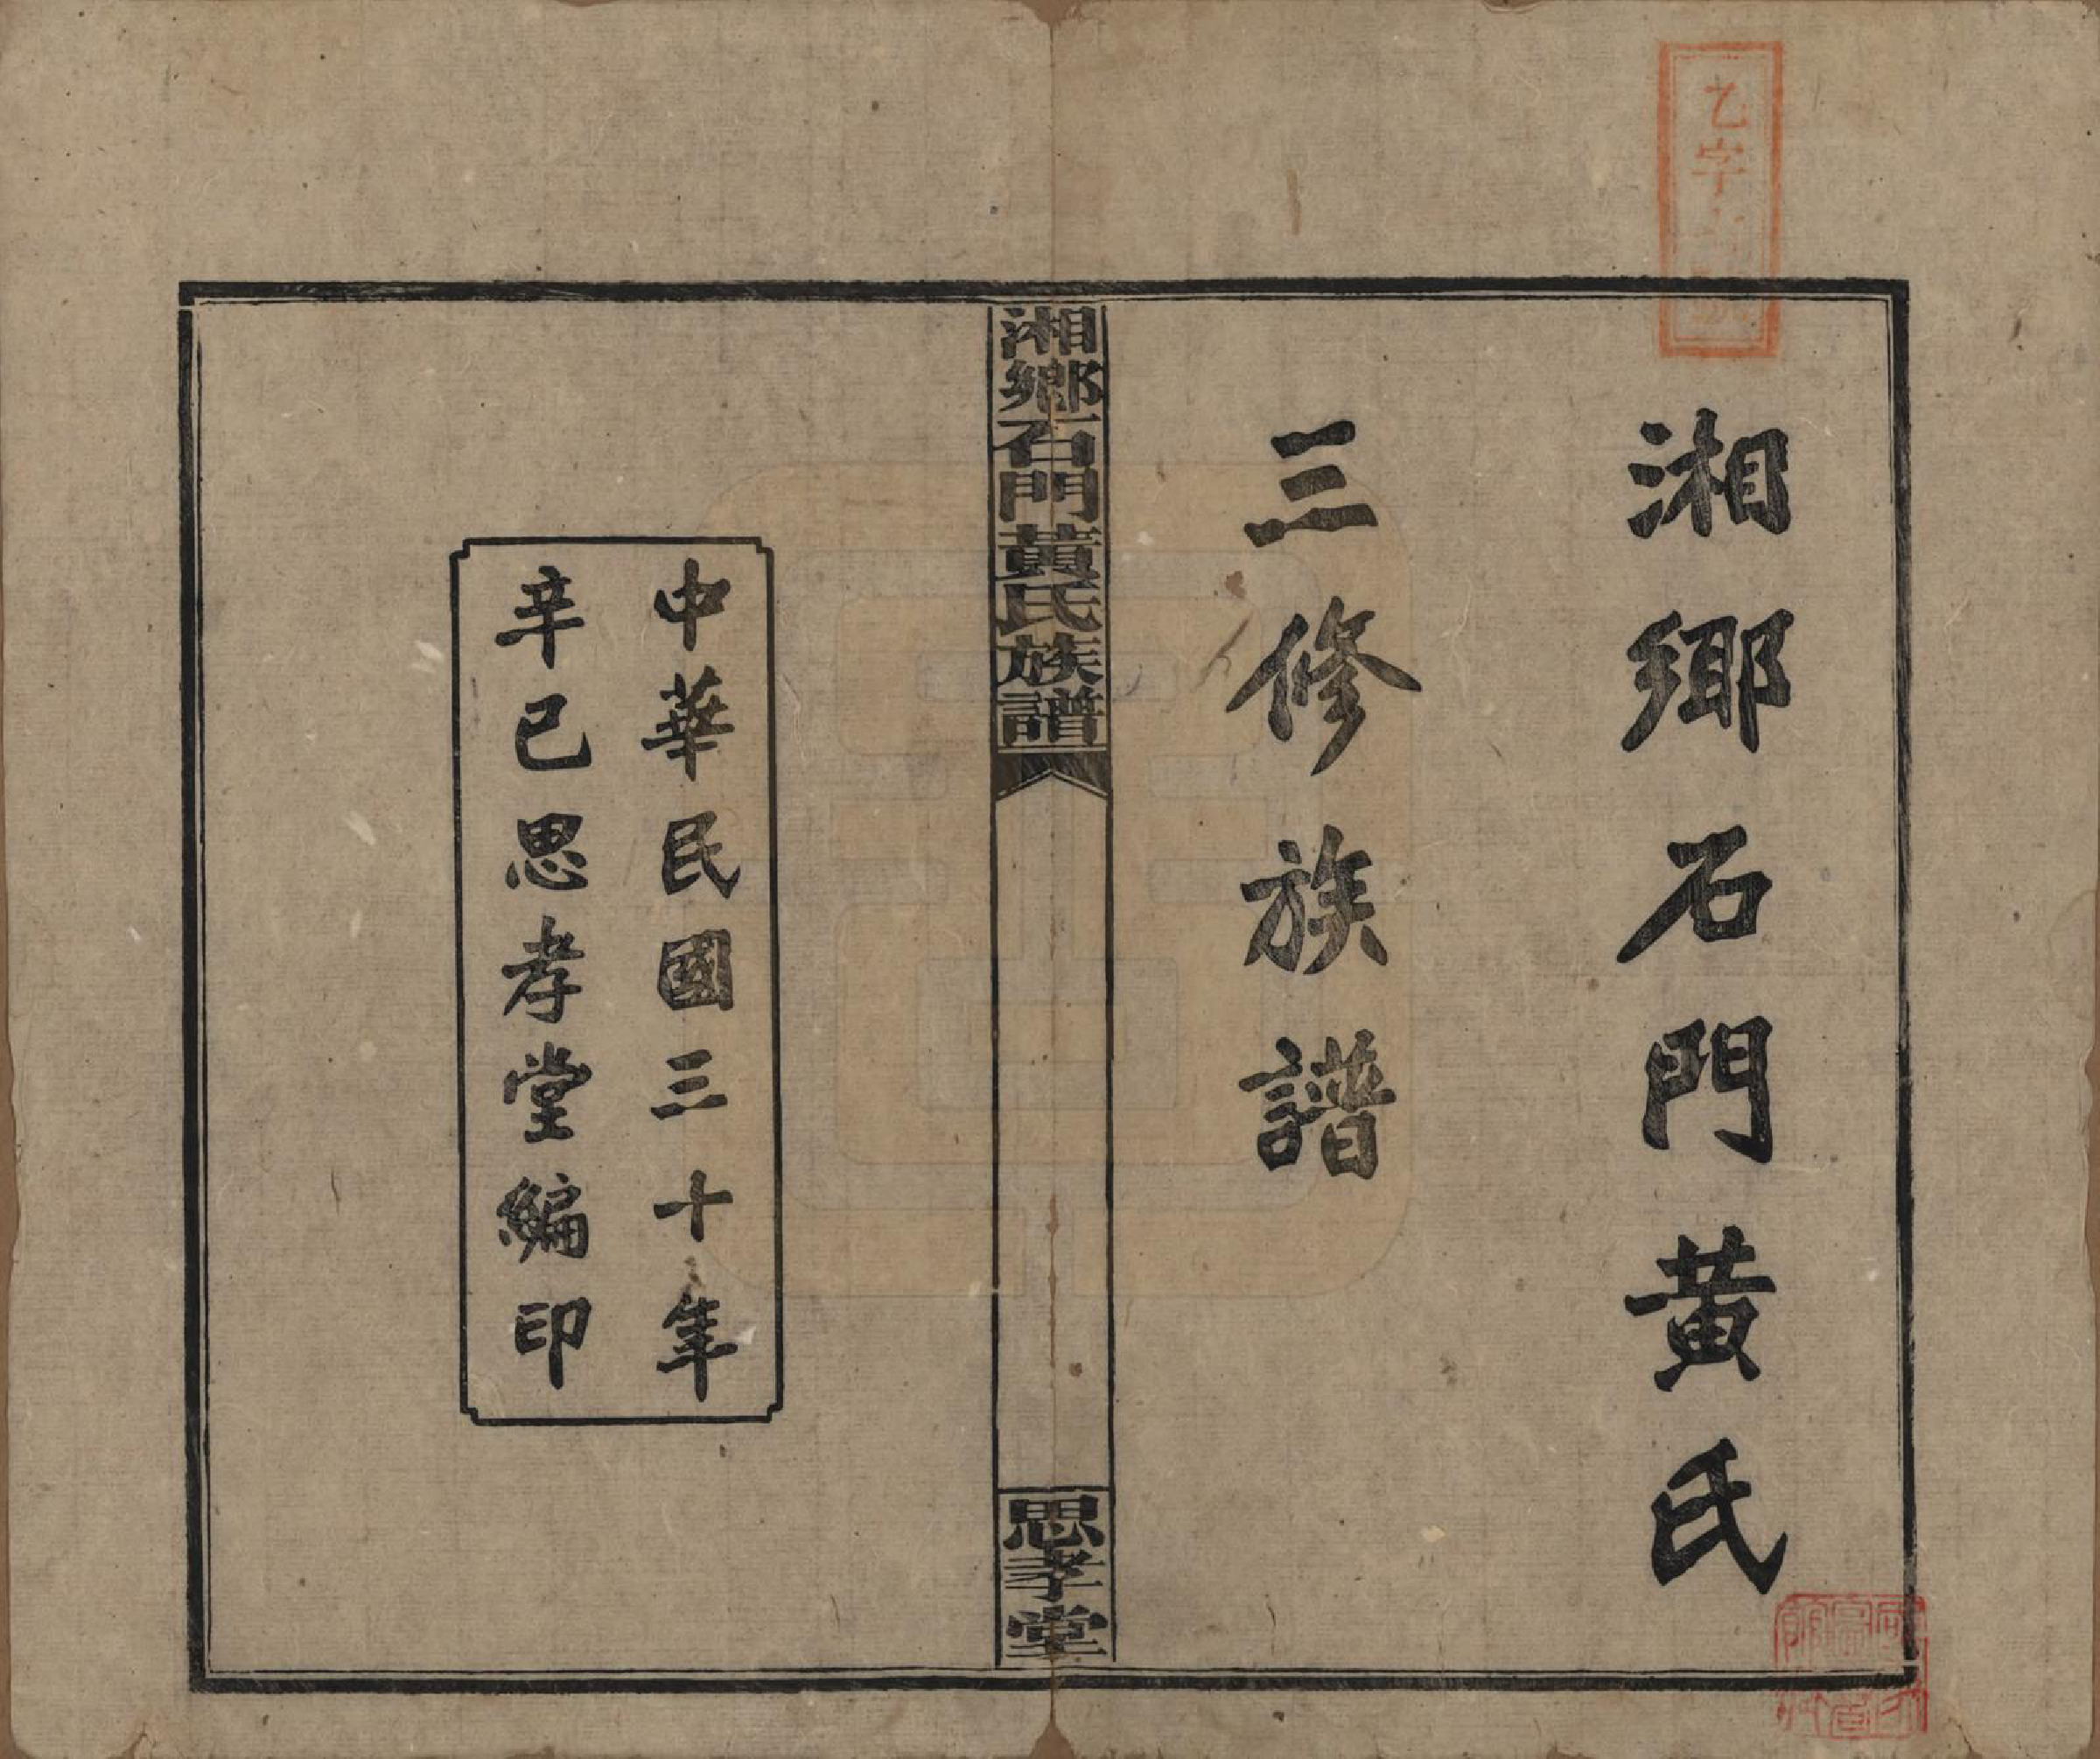 乙字
湘鄉石門黃氏
三修族譜
湘鄉石門黃氏族譜
思孝堂
中華民國三十年
辛已思孝堂編印